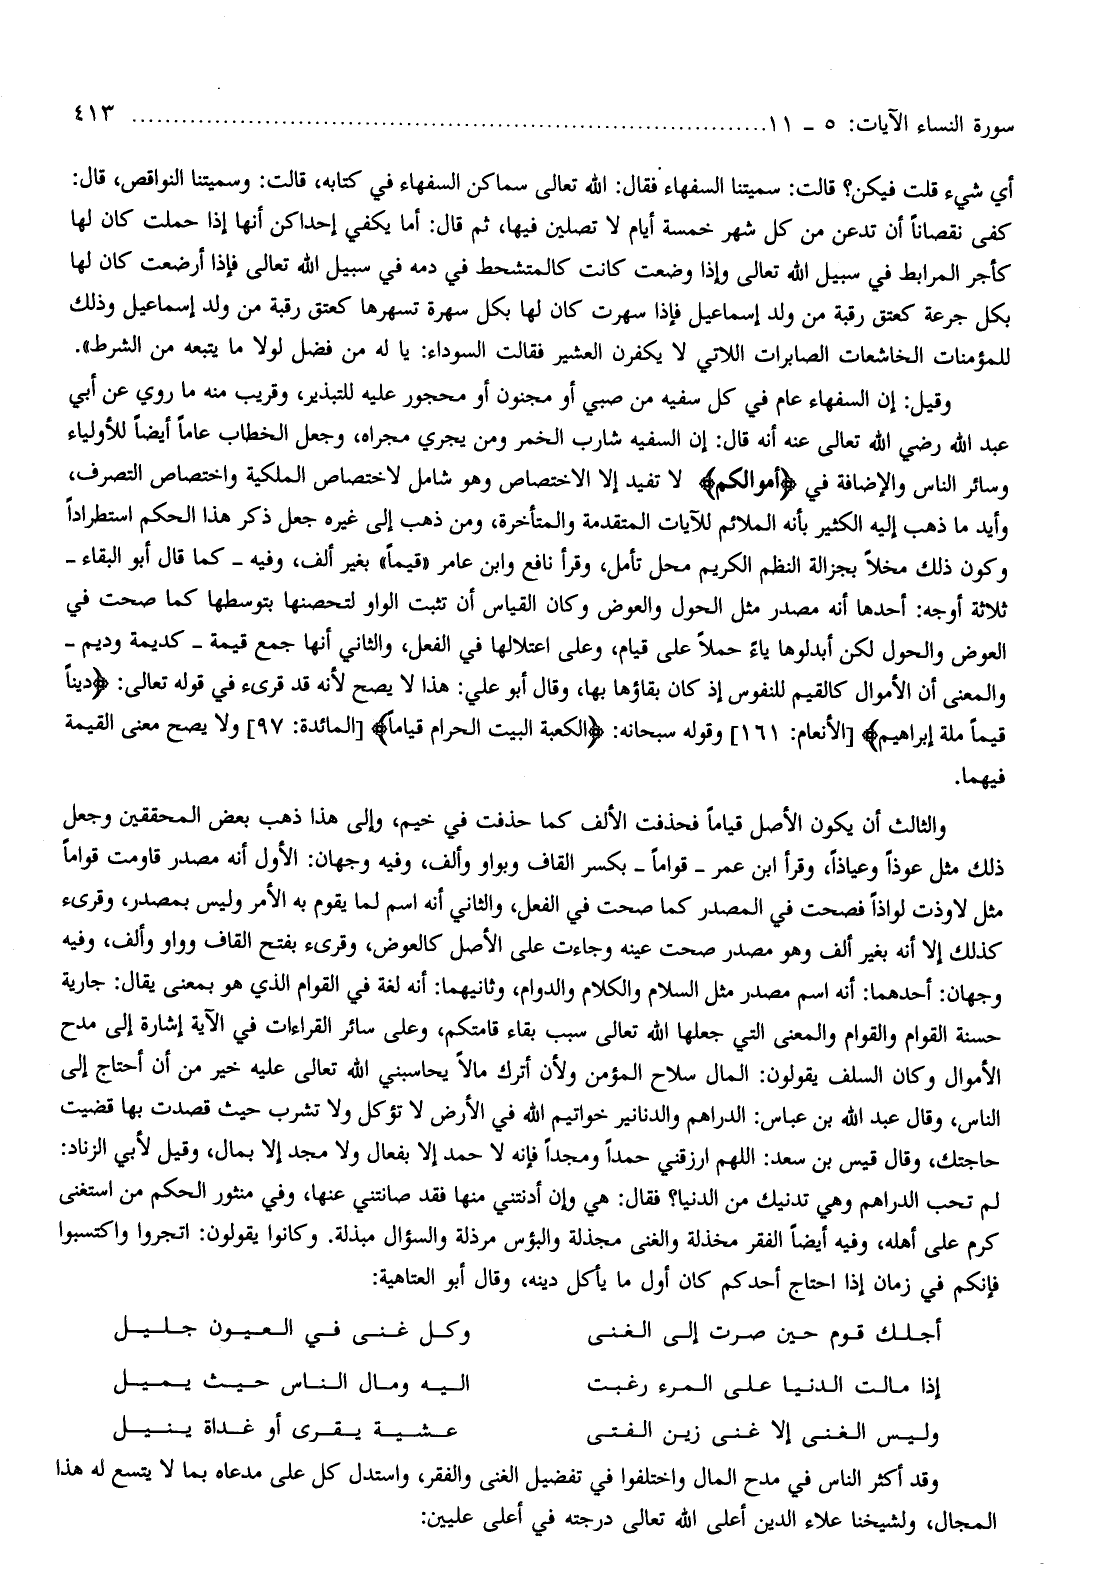 سورة النساء الآيات: ٥ ـ ١١ ................................................................ ٤١٣
أي شيء قلت فيكن؟ قالت: سميتنا السفهاء فقال: الله تعالى سماكن السفهاء في كتابه، قالت: وسميتنا النواقص، قال:
كفى نقصاناً أن تدعن من كل شهر خمسة أيام لا تصلين فيها، ثم قال: أما يكفي إحداكن أنها إذا حملت كان لها
كأجر المرابط في سبيل الله تعالى وإذا وضعت كانت كالمتشحط في دمه في سبيل الله تعالى فإذا أرضعت كان لها
بكل جرعة كعتق رقبة من ولد إسماعيل فإذا سهرت كان لها بكل سهرة تسهرها كعتق رقبة من ولد إسماعيل وذلك
للمؤمنات الخاشعات الصابرات اللاتي لا يكفرن العشير فقالت السوداء: يا له من فضل لولا ما يتبعه من الشرط».
وقيل: إن السفهاء عام في كل سفيه من صبي أو مجنون أو محجور عليه للتبذير، وقريب منه ما روي عن أبي
عبد الله رضي الله تعالى عنه أنه قال: إن السفيه شارب الخمر ومن يجري مجراه، وجعل الخطاب عاماً أيضاً للأولياء
وسائر الناس والإضافة في ﴿أموالكم﴾ لا تفيد إلا الاختصاص وهو شامل لاختصاص الملكية واختصاص التصرف،
وأيد ما ذهب إليه الكثير بأنه الملائم للآيات المتقدمة والمتأخرة، ومن ذهب إلى غيره جعل ذكر هذا الحكم استطراداً
وكون ذلك مخلاً بجزالة النظم الكريم محل تأمل، وقرأ نافع وابن عامر «قيماً» بغير ألف، وفيه ـ كما قال أبو البقاء ـ
ثلاثة أوجه: أحدها أنه مصدر مثل الحول والعوض وكان القياس أن تثبت الواو لتحصنها بتوسطها كما صحت في
العوض والحول لكن أبدلوها ياءً حملاً على قيام، وعلى اعتلالها في الفعل، والثاني أنها جمع قيمة ـ كديمة وديم ـ
والمعنى أن الأموال كالقيم للنفوس إذ كان بقاؤها بها، وقال أبو علي: هذا لا يصح لأنه قد قرىء في قوله تعالى: ﴿ديناً
قيماً ملة إبراهيم﴾ [الأنعام: ١٦١] وقوله سبحانه: ﴿الكعبة البيت الحرام قياماً﴾ [المائدة: ٩٧] ولا يصح معنى القيمة
فيهما.
والثالث أن يكون الأصل قياماً فحذفت الألف كما حذفت في خيم، وإلى هذا ذهب بعض المحققين وجعل
ذلك مثل عوذاً وعياذاً، وقرأ ابن عمر ـ قواماً ـ بكسر القاف وبواو وألف، وفيه وجهان: الأول أنه مصدر قاومت قواماً
مثل لاوذت لواذاً فصحت في المصدر كما صحت في الفعل، والثاني أنه اسم لما يقوم به الأمر وليس بمصدر، وقرىء
كذلك إلا أنه بغير ألف وهو مصدر صحت عينه وجاءت على الأصل كالعوض، وقرىء بفتح القاف وواو وألف، وفيه
وجهان: أحدهما: أنه اسم مصدر مثل السلام والكلام والدوام، وثانيهما: أنه لغة في القوام الذي هو بمعنى يقال: جارية
حسنة القوام والقوام والمعنى التي جعلها الله تعالى سبب بقاء قامتكم، وعلى سائر القراءات في الآية إشارة إلى مدح
الأموال وكان السلف يقولون: المال سلاح المؤمن ولأن أترك مالاً يحاسبني الله تعالى عليه خير من أن أحتاج إلى
الناس، وقال عبد الله بن عباس: الدراهم والدنانير خواتيم الله في الأرض لا تؤكل ولا تشرب حيث قصدت بها قضيت
حاجتك، وقال قيس بن سعد: اللهم ارزقني حمداً ومجداً فإنه لا حمد إلا بفعال ولا مجد إلا بمال، وقيل لأبي الزناد:
لم تحب الدراهم وهي تدنيك من الدنيا؟ فقال: هي وإن أدنتني منها فقد صانتني عنها، وفي منثور الحكم من استغنى
كرم على أهله، وفيه أيضاً الفقر مخذلة والغنى مجذلة والبؤس مرذلة والسؤال مبذلة. وكانوا يقولون: اتجروا واكتسبوا
فإنكم في زمان إذا احتاج أحدكم كان أول ما يأكل دينه، وقال أبو العتاهية:
أجلك قوم حين صرت إلى الغنى وكل غنى في العيون جليل
إذا مالت الدنيا على المرء رغبت اليه ومال الناس حيث يميل
وليس الغنى إلا غنى زين الفتى عشية يقرى أو غداة ينيل
وقد أكثر الناس في مدح المال واختلفوا في تفضيل الغنى والفقر، واستدل كل على مدعاه بما لا يتسع له هذا
المجال، ولشيخنا علاء الدين أعلى الله تعالى درجته في أعلى عليين: